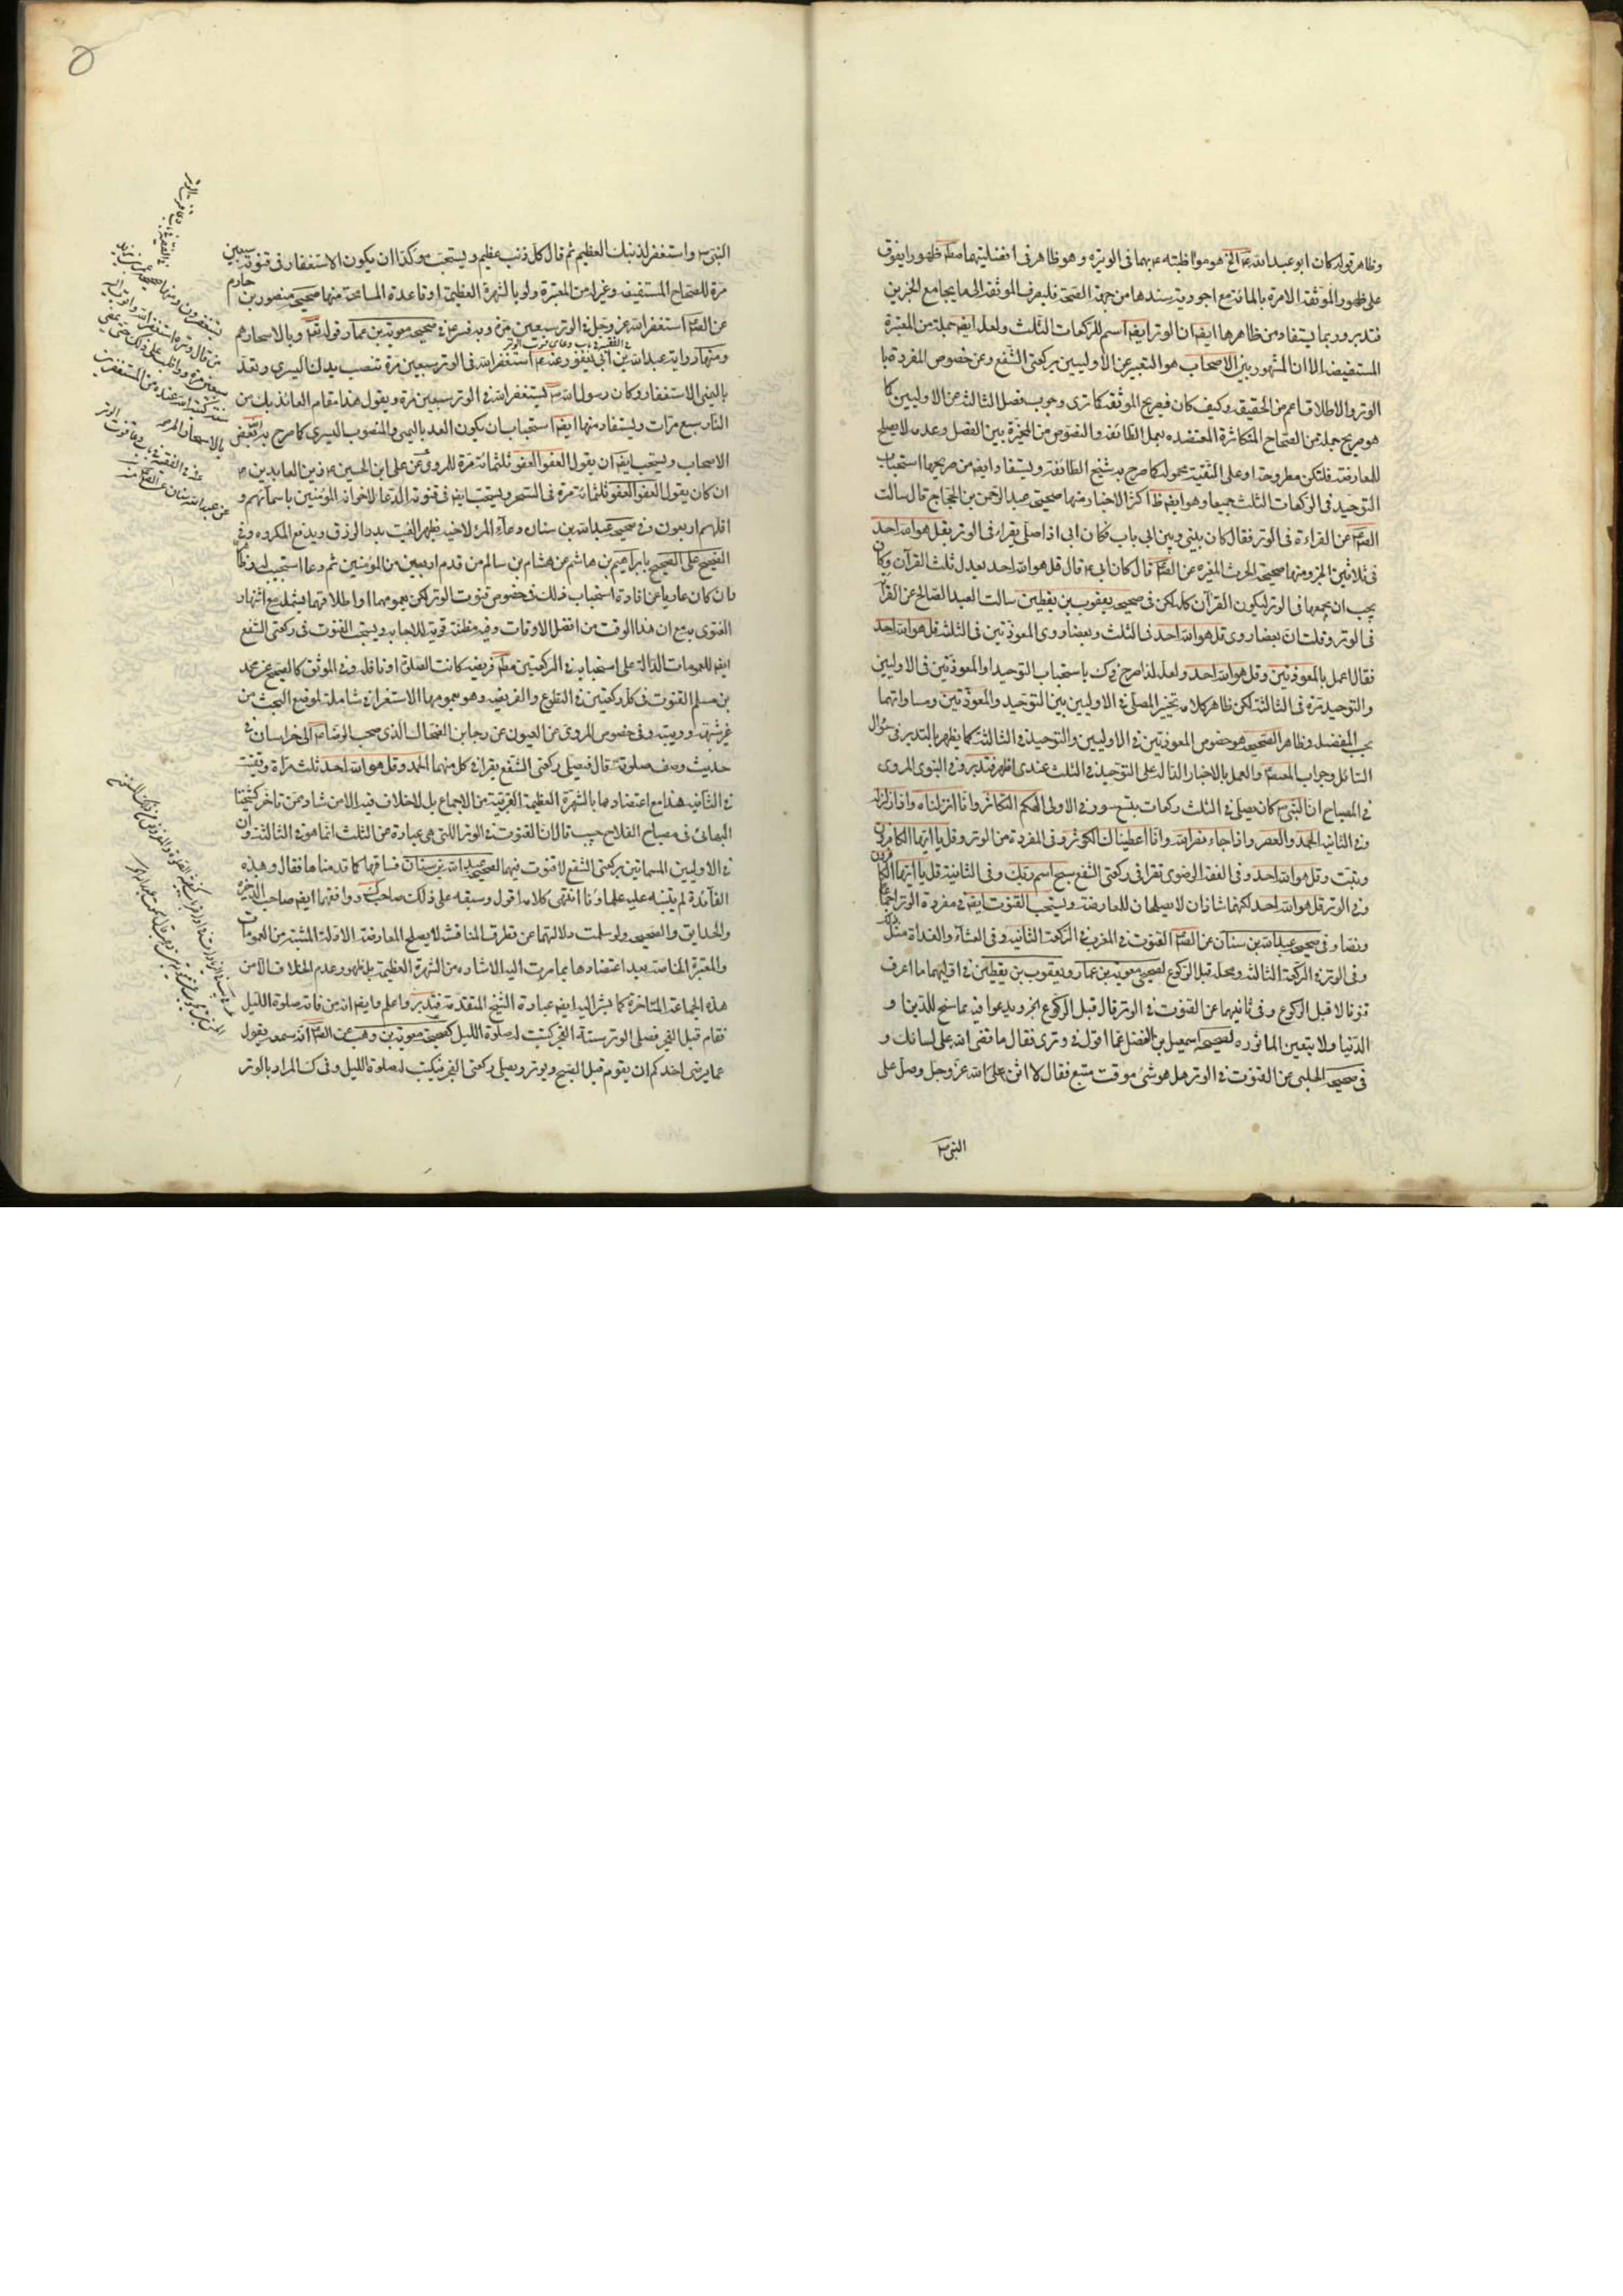 وظاهر قوله كان ابو عبد الله ع الخ هو مواظبته ع بهما فى الوتيرة وهو ظاهر فى افضليتهما مطم ظهورا يفوق
على ظهور الموثقة الامرة بالمائة مع اجودية سندها من جهة الصحة فليصرف الموثقة الى ما يجامع الخبرين
فتدبر وربما يستفاد من ظاهرها ايضا ان الوتر ايضا اسم للركعات الثلث ولعله ايضا جملة من المعتبرة
المستفيضة الا ان المشهور بين الاصحاب هو التعبير عن الاوليين بركعتى الشفع وعن خصوص المفردة با
الوتر والاطلاق اعم من الحقيقة وكيف كان فصريح الموثقة كما ترى وجوب فصل الثالثة عن الاوليين كا
هو صريح جملة من الصحاح المتكاثرة المعتضدة بعمل الطائفة والنصوص المخيرة بين الفصل وعدمه لا يصلح
للمعارضة فلتكن مطروحة او على التقية محمولة كا صرح به شيخ الطائفة ويستفاد ايضا من صريحها استحباب
التوحيد فى الركعات الثلث جميعا وهو ايضا ظ اكثر الاخبار ومنها صحيحة عبد الرحمن بن الحجاج قال سالت
الصم عن القراءة فى الوتر فقال كان بينى وبين ابى باب فكان ابى اذا صلى يقراء فى الوتر بقل هو الله احد
فى ثلاثتهن الخبر ومنها صحيحة الحرث المغيرة عن الصم قال كان ابى ع قال قل هو الله احد يعدل ثلث القرآن وكان
يحب ان يجمعها فى الوتر ليكون القرآن كله لكن فى صحيحة يعقوب بن يقطين سالت العبد الصالح عن القراة
فى الوتر وقلت ان بعضا روى قل هو الله احد فى الثلث وبعضا روى المعوذتين فى الثلثة قل هو الله احد
فقال اعمل بالمعوذتين وقل هو الله احد ولعله لذا صرح فى ك باستحباب التوحيد او المعوذتين فى الاوليين
والتوحيد مرة فى الثالثة لكن ظاهر كلامه تخيير المصلى فى الاوليين بين التوحيد والمعوذتين ومساواتهما
بحسب الفضل وظاهر الصحيحة هو خصوص المعوذتين فى الاوليين والتوحيد فى الثالثة كما يظهر بالتدبر فى سؤال
السائل وجواب المعصوم والعمل بالاخبار الدالة على التوحيد فى الثلث عندى اظهر فتدبر وفى النبوى المروى
فى المصباح ان النبى ص كان يصلى فى الثلث ركعات بتسع سور فى الاولى الهكم التكاثر وانا انزلناه واذا زلزلت
وفى الثانية الحمد والعصر واذا جاء نصر الله وانا اعطيناك الكوثر وفى المفردة من الوتر وقل يا ايها الكافرون
وتبت وقل هو الله احد وفى الفقه الرضوى تقرا فى ركعتى الشفع سبح اسم ربك وفى الثانية قل يا ايها الكافرون
وفى الوتر قل هو الله احد لكنهما شاذان لا يصلحان للمعارضة ويستحب القنوت ايضا فى مفردة الوتر اجماعا
ونصا وفى صحيحة عبد الله بن سنان عن الصم القنوت فى المغرب فى الركعة الثانية وفى العشاء والغداة مثل ذلك
وفى الوتر فى الركعة الثالثة ومحله قبل الركوع لصحيحى معوية بن عمار ويعقوب بن يقطين فى اوليهما ما اعرف
قنوتا لا قبل الركوع وفى ثانيهما عن القنوت فى الوتر قال قبل الركوع الخبر ويدعوا فيه بما سنح للدين او
الدنيا ولا يتعين الماثورة لصحيحة اسمعيل بن الفضل عما اقول فى وترى فقال ما قضى الله على لسانك و
فى صحيحة الحلبى عن القنوت فى الوتر هل هو شئ موقت متبع فقال لا اثن على الله عز وجل وصل على
النبى ص
النبى ص واستغفر لذنبك العظيم ثم قال كل ذنب عظيم ويستحب مؤكدا ان يكون الاستغفار فى قنوته سبعين
مرة للصحاح المستفيضة وغيرها من المعتبرة ولو بالشهرة العظيمة او قاعدة المسامحة منها صحيحة منصور بن حازم
عن الصم استغفر الله عز وجل فى الوتر سبعين مرة وبه فسر ع فى صحيحة معوية بن عمار قوله تعم وبالاسحار هم
ومنها رواية عبد الله بن ابى يعفور عنه ع استغفر الله فى الوتر سبعين مرة تنصب يدك اليسرى وتعد
باليمنى الاستغفار وكان رسول الله ص يستغفر الله فى الوتر سبعين مرة ويقول هذا مقام العائذ بك من
النار سبع مرات ويستفاد منها ايضا استحباب ان يكون العد باليمنى والمنصوب اليسرى كا صرح به بعض
الاصحاب ويستحب ايضا ان يقول العفو العفو ثلثمائة مرة للمروى عن على ابن الحسين ع زين العابدين ع
ان كان يقول العفو العفو ثلثمائة مرة فى السحر ويستحب ايضا فى قنوته الدعا لاخوانه المؤمنين باسمائهم و
اقلهم اربعون وفى صحيحة عبد الله بن سنان دعاء المرء لاخيه بظهر الغيب يدر الرزق ويدفع المكروه وفى
الصحيح على الصحيح بابراهيم بن هاشم عن هشام بن سالم من قدم اربعين من المؤمنين ثم دعا استجيب له وهذا
وان كان عاريا عن افادة استحباب ذلك فى خصوص قنوت الوتر لكن بعمومهما او اطلاقهما يشمله مع اشتهار
الفتوى به مع ان هذا الوقت من افضل الاوقات وفيه مظنة قوية للاجابة ويستحب القنوت فى ركعتى الشفع
ايضا للعمومات الدالة على استحبابه فى الركعتين مطم فريضة كانت الصلوة او نافلة وفى الموثق كالصحيح عن محمد
بن مسلم القنوت فى كل ركعتين فى التطوع والفريضة وهو بعمومها الاستغراقى شاملة لموضع البحث من
غير شبهة وريبة وفى خصوص المروى عن العيون عن رجا بن الضحاك الذى صحب الرضا ع الى خراسان فى
حديث وصف صلوته قال فيصلى ركعتى الشفع يقرا فى كل منهما الحمد وقل هو الله احد ثلث مرات ويقنت
فى الثانية هذا مع اعتضادها بالشهرة العظيمة القريبة من الاجماع بل لا خلاف فيه الا من شاذ ممن تاخر كشيخنا
البهائى فى مصباح الفلاح حيث قال ان القنوت فى الوتر اللتى هى عبارة عن الثلث انما هو فى الثالثة وان
فى الاوليين المسماتين بركعتى الشفع لا قنوت فيهما لصحيح عبد الله بن سنان فساقها كا قدمناها فقال وهذه
الفائدة لم يتنبه عليه علماؤنا انتهى كلامه اقول وسبقه على ذلك صاحب ك ووافقهما ايضا صاحب الذخيرة
والحدايق والصحيحة ولو سلمت دلالتهما عن تطرق المناقشة لا يصلح المعارضة الادلة المثبتة من العمومات
والمعتبرة الخاصة بعد اعتضادها بما مرت اليه الاشارة من الشهرة العظيمة بل ظهور عدم الخلاف الا من
هذه الجماعة المتاخرة كما يشير اليه ايضا عبارة الشيخ المتقدمة فتدبر واعلم ايضا انه من فاته صلوة الليل
فقام قبل الفجر فصلى الوتر وسنة الفجر كتبت له صلوة الليل لصحيحة معوية بن وهب عن الصم انه سمعه يقول
اما يرضى احدكم ان يقوم قبل الصبح ويوتر ويصلى ركعتى الفجر فيكتب له صلوة الليل وفى ك المراد بالوتر